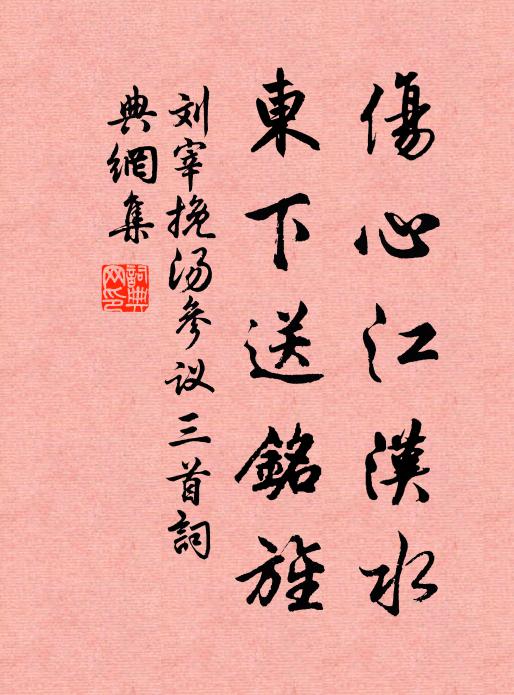 傷心江漢水
東下送銘旌
刘宰挽汤參议三首詞
典網集
詞典网印